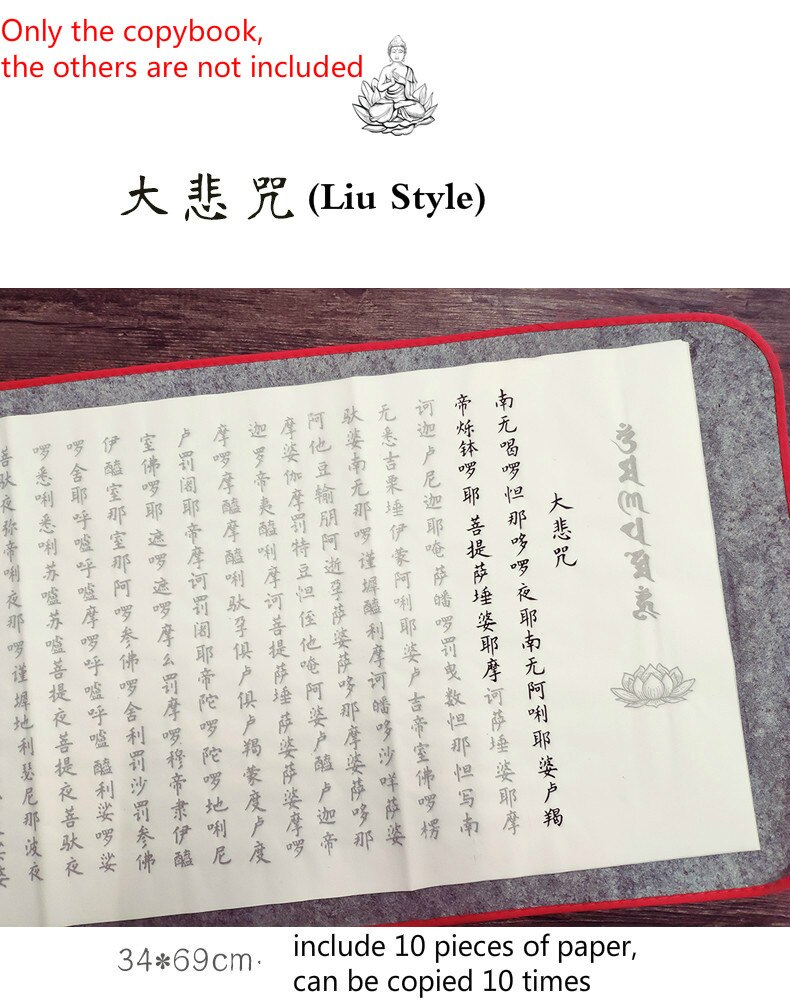 Only the copybook,
the others are not included
大悲咒 (Liu Style)
大悲咒
南无喝啰怛那哆啰夜耶南无阿唎耶婆卢羯
帝烁钵啰耶 菩提萨埵婆耶摩诃萨埵婆耶摩
诃迦卢尼迦耶唵萨皤啰罚曳数怛那怛写南
无悉吉栗埵伊蒙阿唎耶婆卢吉帝室佛啰楞
驮婆南无那啰谨墀醯利摩诃皤哆沙咩萨婆
阿他豆输朋阿逝孕萨婆萨哆那摩婆萨哆那
摩婆伽摩罚特豆怛侄他唵阿婆卢醯卢迦帝
迦罗帝夷醯唎摩诃菩提萨埵萨婆萨婆摩啰
摩啰摩醯摩醯唎驮孕俱卢俱卢羯蒙度卢度
卢罚阇耶帝摩诃罚阇耶帝陀啰陀啰地唎尼
室佛啰耶遮啰遮啰摩么罚摩啰穆帝隶伊醯
伊醯室那室那阿啰参佛啰舍利罚沙罚参佛
啰舍耶呼嚧呼嚧摩啰呼嚧呼嚧醯利娑啰娑
啰悉唎悉唎苏嚧苏嚧菩提夜菩提夜菩驮夜
菩驮夜弥帝唎夜那啰谨墀地利瑟尼那波夜
34*69cm.
include 10 pieces of paper,
can be copied 10 times